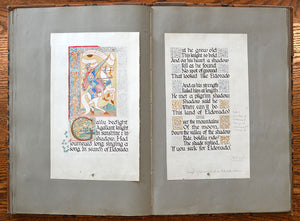 Gaily bedight
A gallant knight
In sunshine & in
shadow. Had
journeyed long singing a
song, in search of Eldorado
But he grew old
This knight so bold
And o'er his heart a shadow
fell as he found
No spot of ground
That looked like Eldorado
And as his strength
failed him at length
He met a pilgrim shadow
Shadow said he
Where can it be
This land of Eldorado?
Over the mountains
Of the moon,
Down the valley of the shadow
Ride, boldly ride!
The shade replied
If you seek for Eldorado!